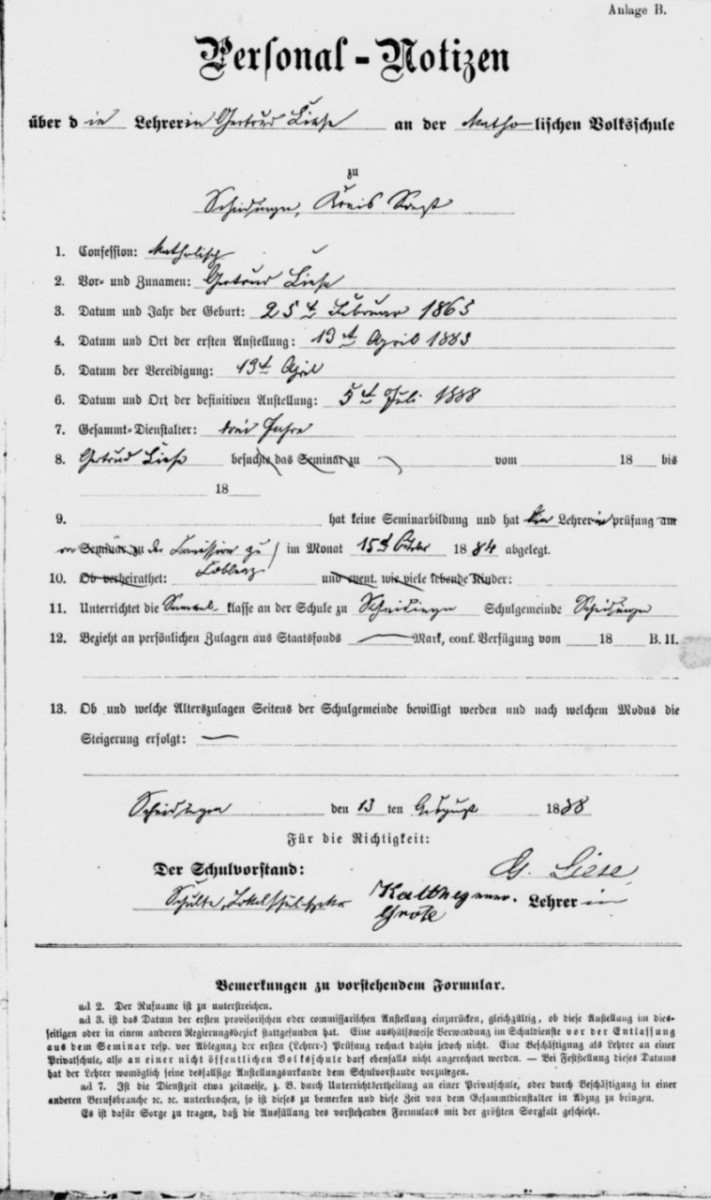 Anlage B.
Personal-Notizen
über die Lehrerin Gertrud Liese an der katholischen Volksschule
zu
Scheidingen, Kreis Soest
1. Confession: katholisch
2. Vor- und Zunamen: Gertrud Liese
3. Datum und Jahr der Geburt: 25t Februar 1865
4. Datum und Ort der ersten Anstellung: 13t April 1885
5. Datum der Vereidigung: 13t April
6. Datum und Ort der definitiven Anstellung: 5t Juli 1888
7. Gesammt-Dienstalter: drei Jahre
8. Gertrud Liese besuchte das Seminar zu vom 18 bis
18
9. hat keine Seminarbildung und hat die Lehrerinprüfung am
vor Seminar zu der Comission zu im Monat 15t October 1884 abgelegt.
Coblenz
10. Ob verheirathet: und event. wie viele lebende Kinder:
11. Unterrichtet die klasse an der Schule zu Scheidingen Schulgemeinde Scheidingen
12. Bezieht an persönlichen Zulagen aus Staatsfonds — Mark, conf. Verfügung vom 18 B. II.
13. Ob und welche Alterszulagen Seitens der Schulgemeinde bewilligt werden und nach welchem Modus die
Steigerung erfolgt: —
Scheidingen den 13 ten August 1888
Für die Richtigkeit:
Der Schulvorstand: G. Liese
Schulte, Lokalschulinspektor Lehrerin
Grote
Bemerkungen zu vorstehendem Formular.
ad 2. Der Rufname ist zu unterstreichen.
ad 3. ist das Datum der ersten provisorischen oder commissarischen Anstellung einzurücken, gleichgültig, ob diese Anstellung im dies-
seitigen oder in einem anderen Regierungsbezirk stattgefunden hat. Eine aushülfsweise Verwendung im Schuldienste vor der Entlassung
aus dem Seminar resp. vor Ablegung der ersten (Lehrer-) Prüfung rechnet dahin jedoch nicht. Eine Beschäftigung als Lehrer an einer
Privatschule, also an einer nicht öffentlichen Volksschule darf ebenfalls nicht angerechnet werden. — Bei Feststellung dieses Datums
hat der Lehrer womöglich seine desfallsige Anstellungsurkunde dem Schulvorstande vorzulegen.
ad 7. Ist die Dienstzeit etwa zeitweise, z. B. durch Unterrichtertheilung an einer Privatschule, oder durch Beschäftigung in einer
anderen Berufsbranche ꝛc. ꝛc. unterbrochen, so ist dieses zu bemerken und diese Zeit von dem Gesammtdienstalter in Abzug zu bringen.
Es ist dafür Sorge zu tragen, daß die Ausfüllung des vorstehenden Formulars mit der größten Sorgfalt geschieht.